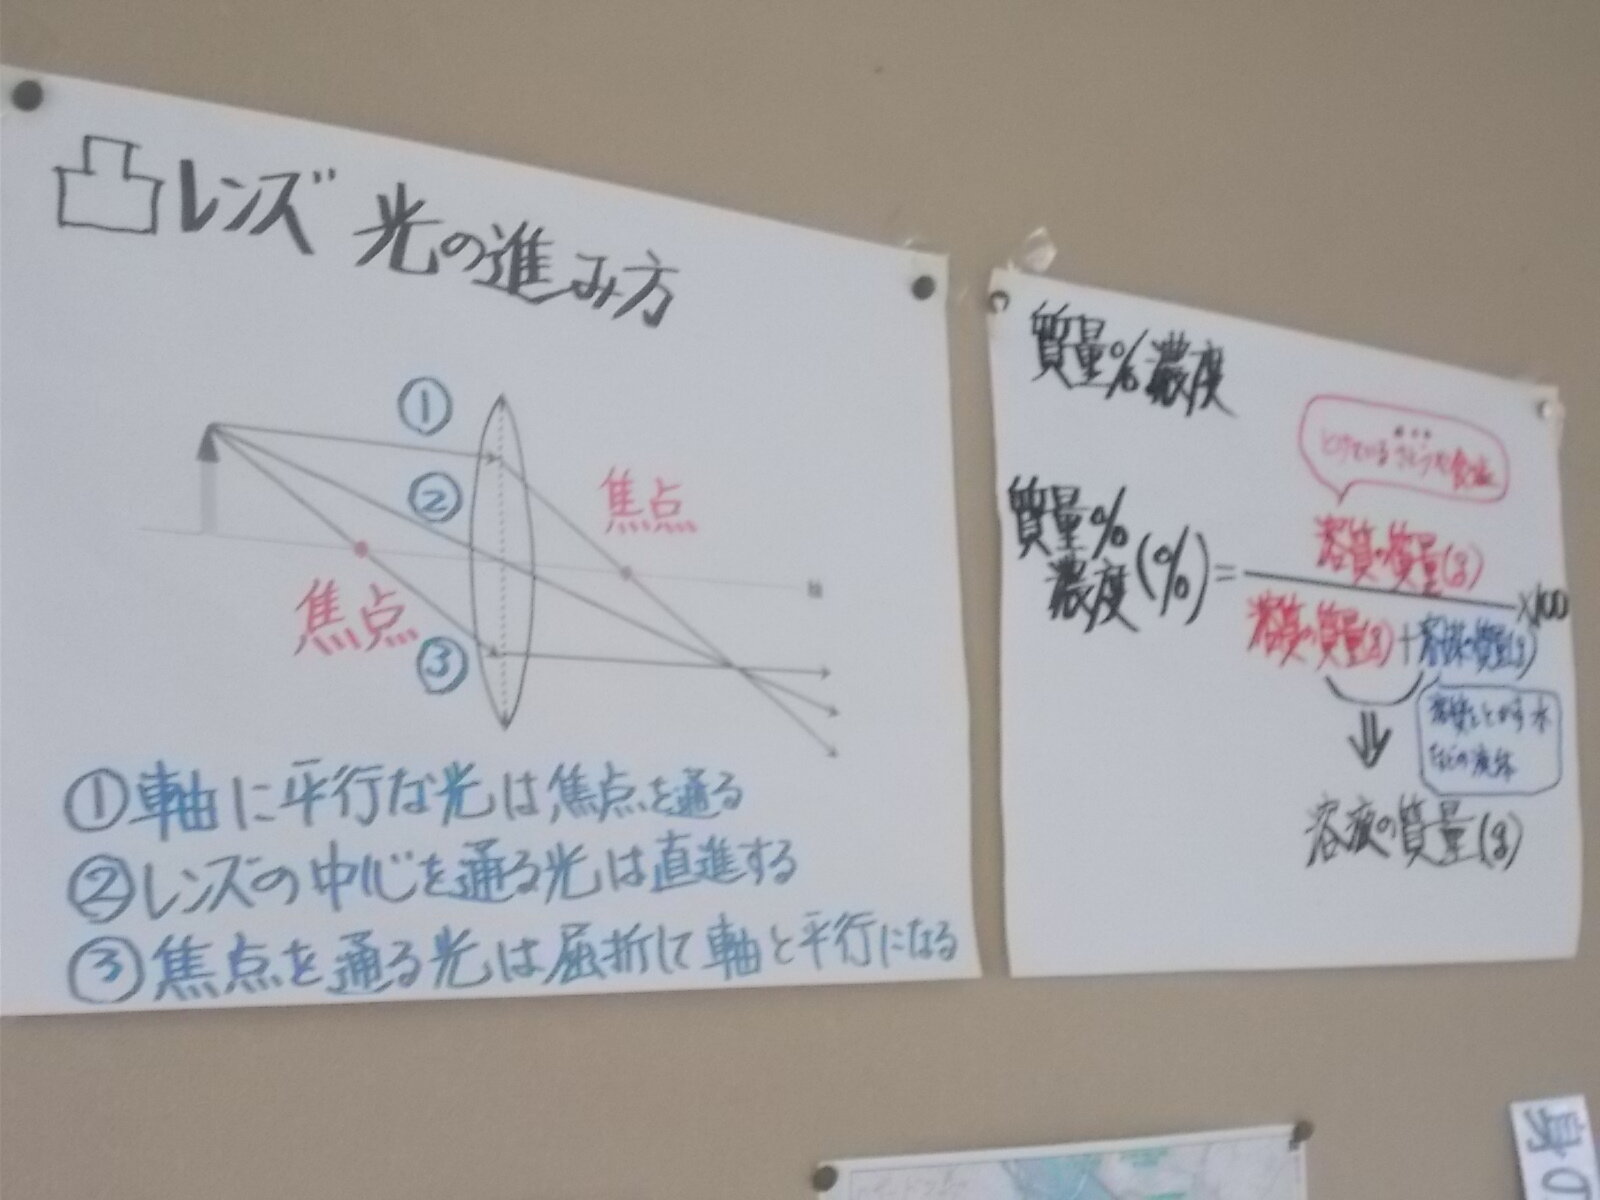 凸レンズ 光の進み方
①
②
焦点
焦点
③
軸
①軸に平行な光は、焦点を通る
②レンズの中心を通る光は直進する
③焦点を通る光は屈折して軸と平行になる
質量%濃度
とけているさとうや食塩
質量%
濃度(%)=
溶質の質量(g)
×100
溶質の質量(g)+溶媒の質量(g)
溶質をとかす水
などの液体
溶液の質量(g)
身の